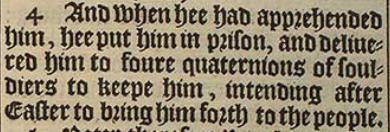 4 And when hee had apprehended
him, hee put him in prison, and deliue-
red him to foure quaternions of soul-
diers to keepe him, intending after
Easter to bring him forth to the people.